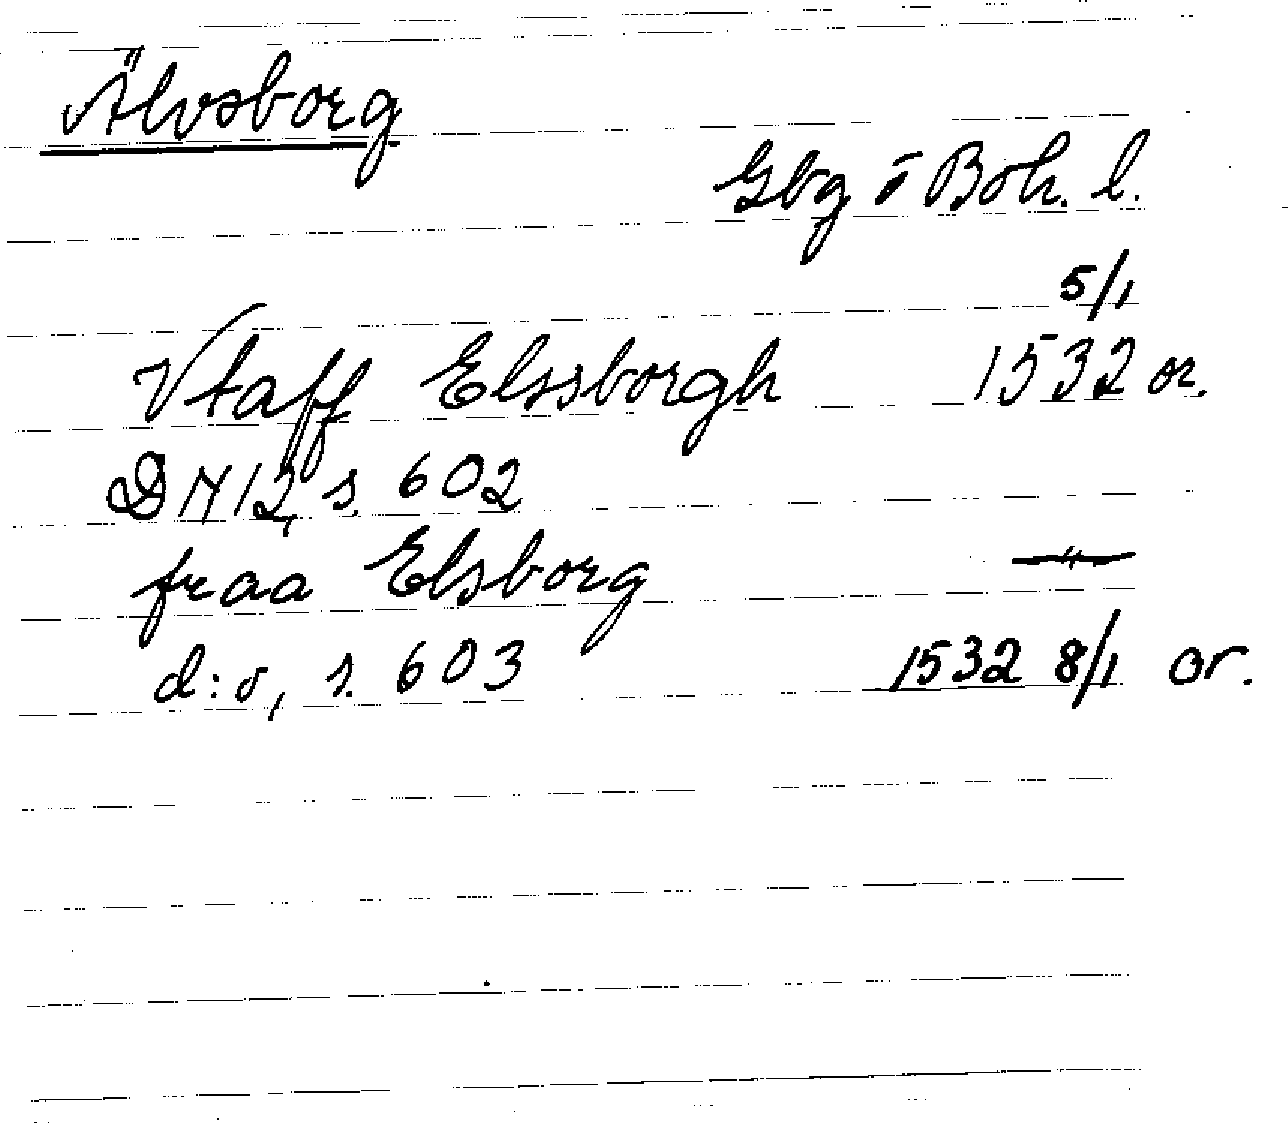 Älvsborg
Gbg o Boh. l.
5/1
Vtaff Elssborgh 1532 or.
DN 12, s. 602
fraa Elsborg —"—
d:o, s. 603 1532 8/1 or.